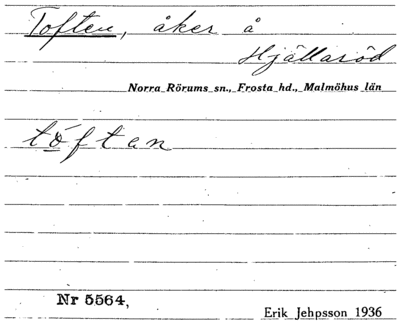 Toften, åker å
Hjällaröd
Norra Rörums sn., Frosta hd., Malmöhus län
töftan
Nr 5564,
Erik Jehpsson 1936